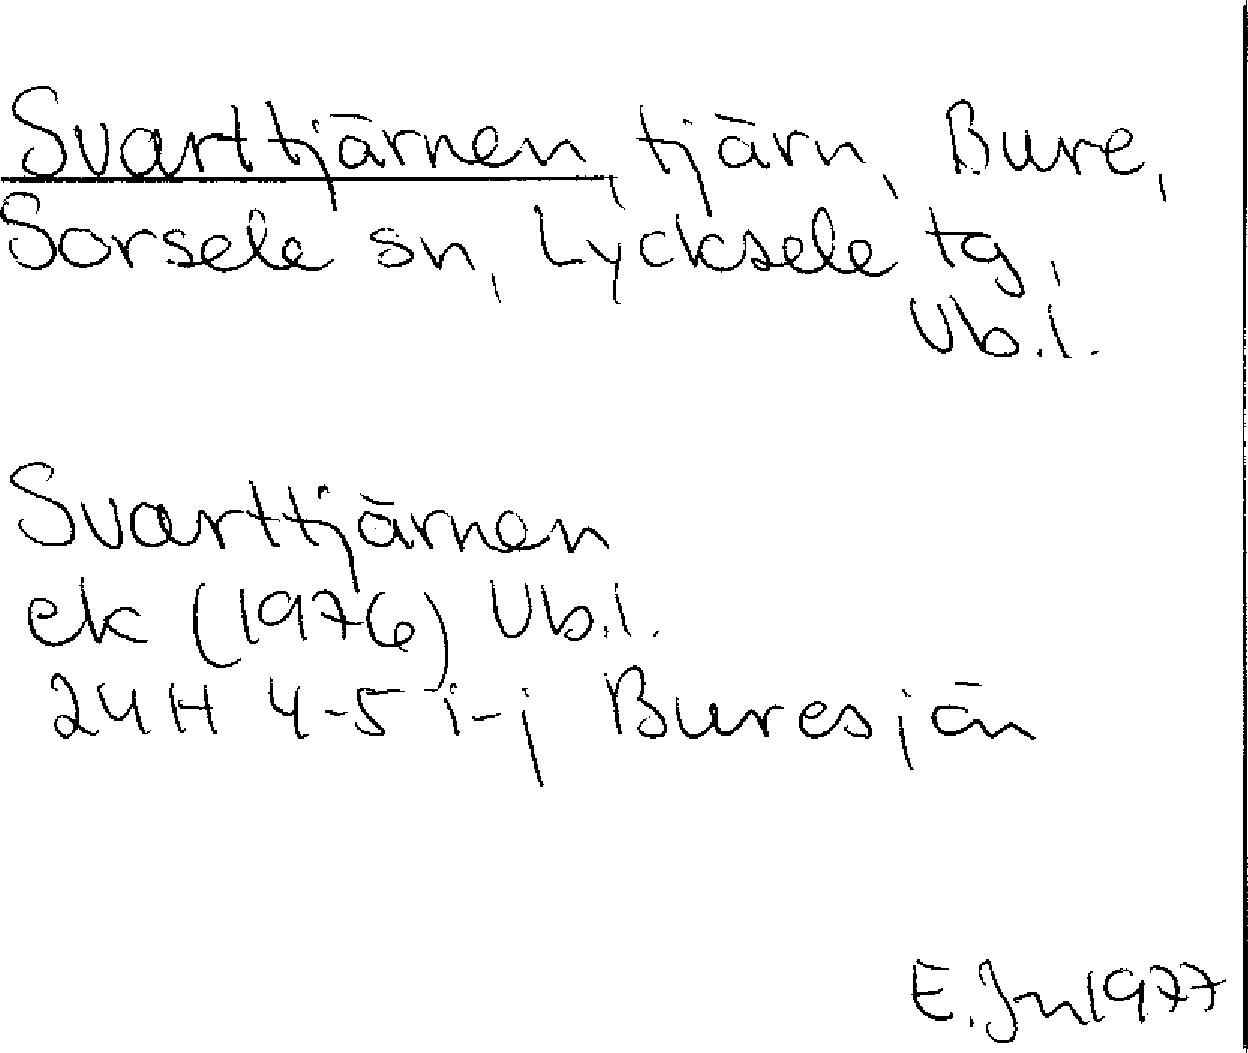 Svarttjärnen, tjärn, Bure,
Sorsele sn, Lycksele tg,
Vb.l.
Svarttjärnen
ek (1976) Vb.l.
24H 4-5 i-j Buresjön
E. Jn 1977